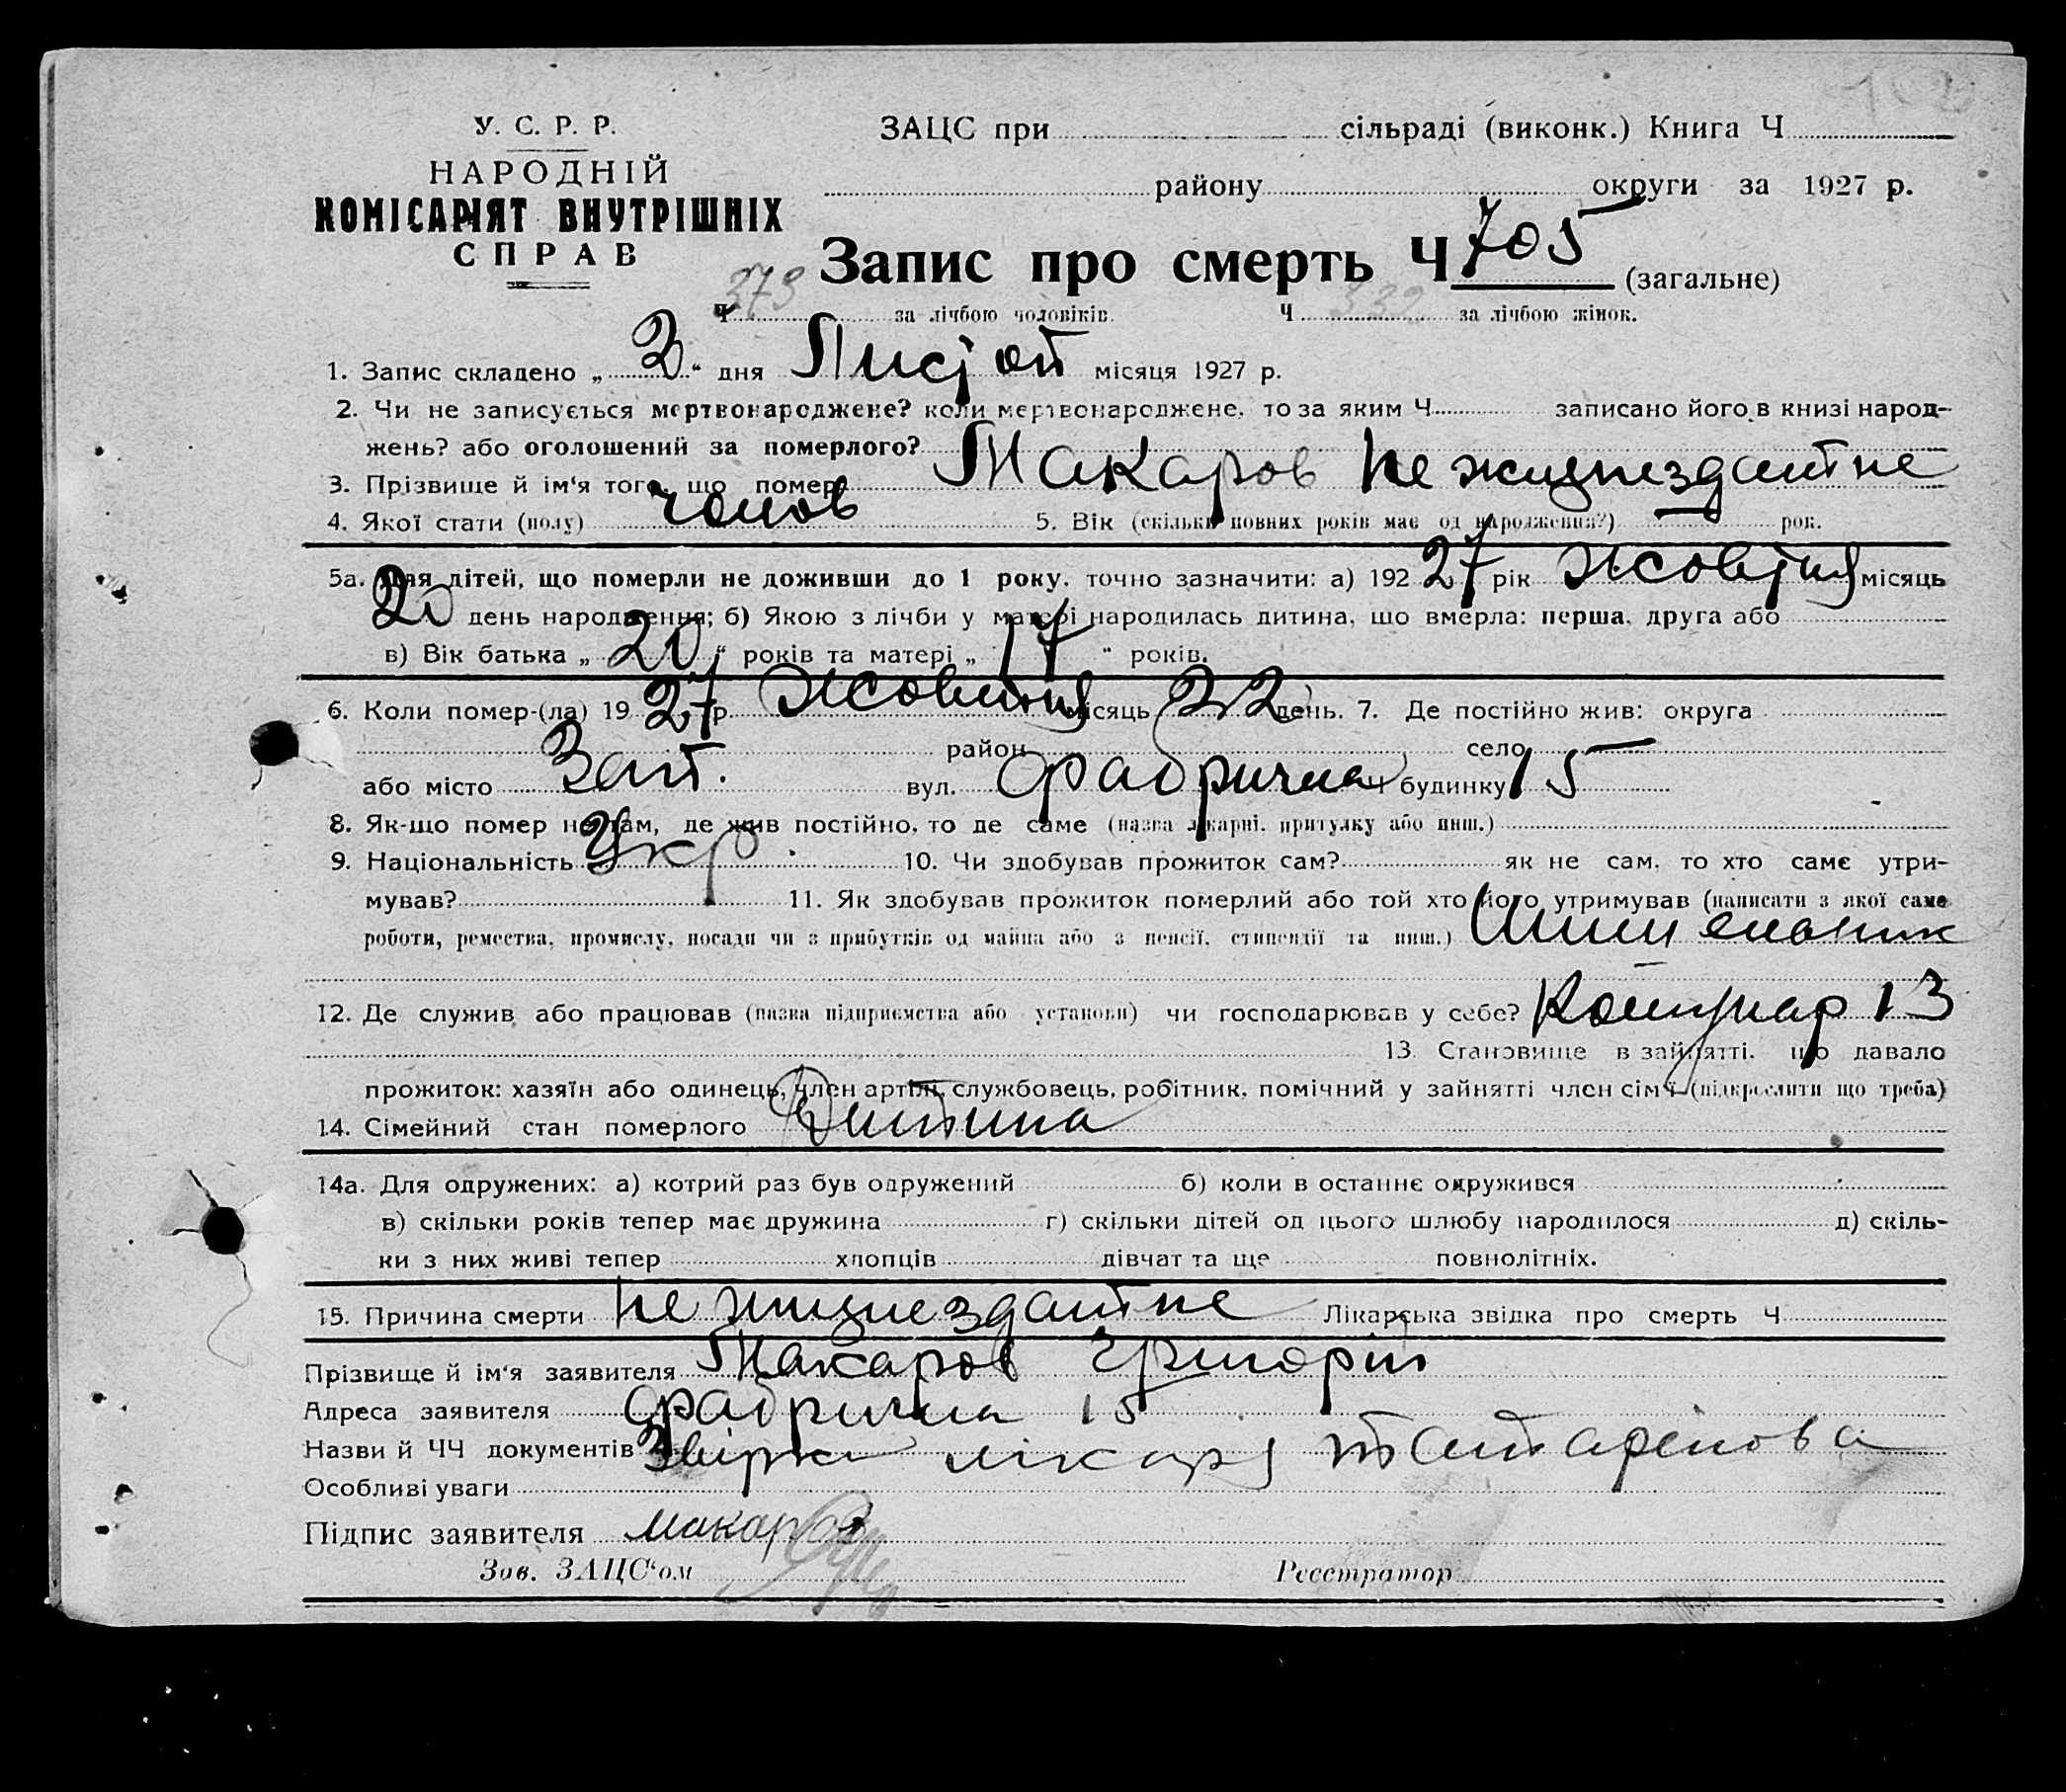 У. С. Р. Р.
НАРОДНІЙ
КОМІСАРІЯТ ВНУТРІШНІХ
СПРАВ
ЗАЦС при сільраді (виконк.) Книга Ч
району округи за 1927 р.
Запис про смерть Ч 705 (загальне)
Ч 373 за лічбою чоловіків. Ч 332 за лічбою жінок.
1. Запис складено „ 2 “ дня Лист оп місяця 1927 р.
2. Чи не записується мертвонароджене? коли мертвонароджене, то за яким Ч записано його в книзі народ-
жень? або оголошений за померлого?
3. Прізвище й ім'я того, що помер Макаров не жицнездатне
4. Якої стати (полу) чолов 5. Вік (скільки повних років має од народження?) — рок.
5а. Для дітей, що померли не доживши до 1 року, точно зазначити: а) 192 27 рік жовтня місяць
20 день народження; б) Якою з лічби у матері народилась дитина, що вмерла: перша, друга або
в) Вік батька „ 20 “ років та матері „ 17 “ років.
6. Коли помер-(ла) 19 27 р. жовтня місяць 22 день. 7. Де постійно жив: округа
район село
або місто Зап. вул. Фабрична Ч будинку 15
8. Як-що помер не там, де жив постійно, то де саме (назва лікарні, притулку або инш.)
9. Національність Укр 10. Чи здобував прожиток сам? як не сам, то хто саме утри-
мував? 11. Як здобував прожиток померлий або той хто його утримував (написати з якої саме
роботи, ремества, промислу, посади чи з прибутків од майна або з пенсії, стипендії та инш.)
12. Де служив або працював (назва підприємства або установи) чи господарював у себе? Комунар 13
13. Становище в зайнятті, що давало
прожиток: хазяїн або одинець, член артілі, службовець, робітник, помічний у зайнятті член сім'ї (підкреслити що треба)
14. Сімейний стан померлого Дитина
14а. Для одружених: а) котрий раз був одружений б) коли в останнє одружився
в) скільки років тепер має дружина г) скільки дітей од цього шлюбу народилося д) скіль-
ки з них живі тепер хлопців дівчат та ще повнолітніх.
15. Причина смерти не жицнездатне Лікарська звідка про смерть Ч
Прізвище й ім'я заявителя Макаров Григорій
Адреса заявителя Фабрична 15
Назви й ЧЧ документів лікаря Татарінова
Особливі уваги
Підпис заявителя Макаров
Зав. ЗАЦС'ом Реєстратор